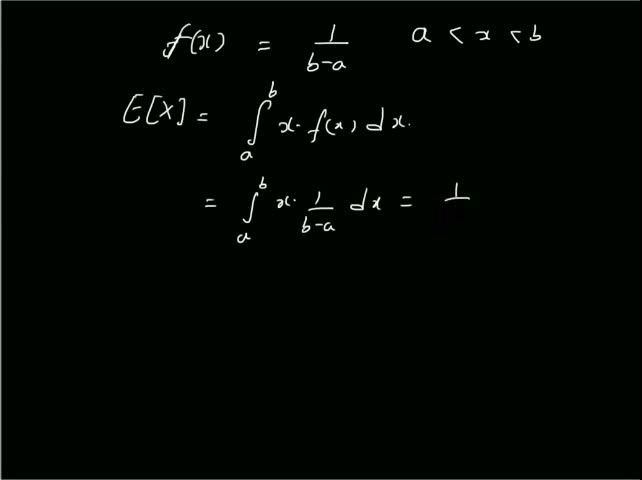 f(x) = 1/(b-a) a < x < b
E[X] = ∫_a^b x · f(x) dx.
= ∫_a^b x · 1/(b-a) dx = 1/